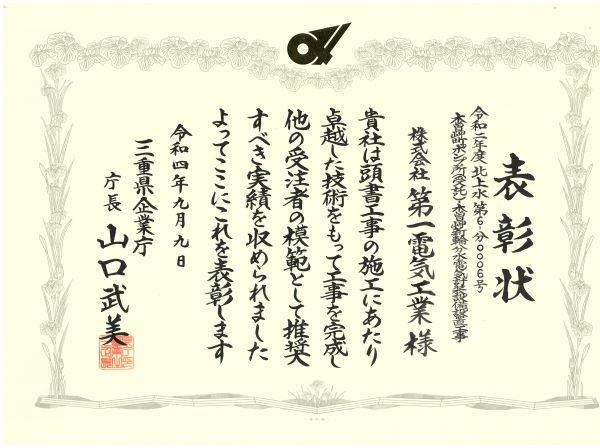 表彰状
令和二年度 北上水 第6-分0006号
株式会社 第一電気工業 様
貴社は頭書工事の施工にあたり
卓越した技術をもって工事を完成し
他の受注者の模範として推奨
すべき実績を収められました
よってここにこれを表彰します
令和四年九月九日
三重県企業庁
庁長 山口武美